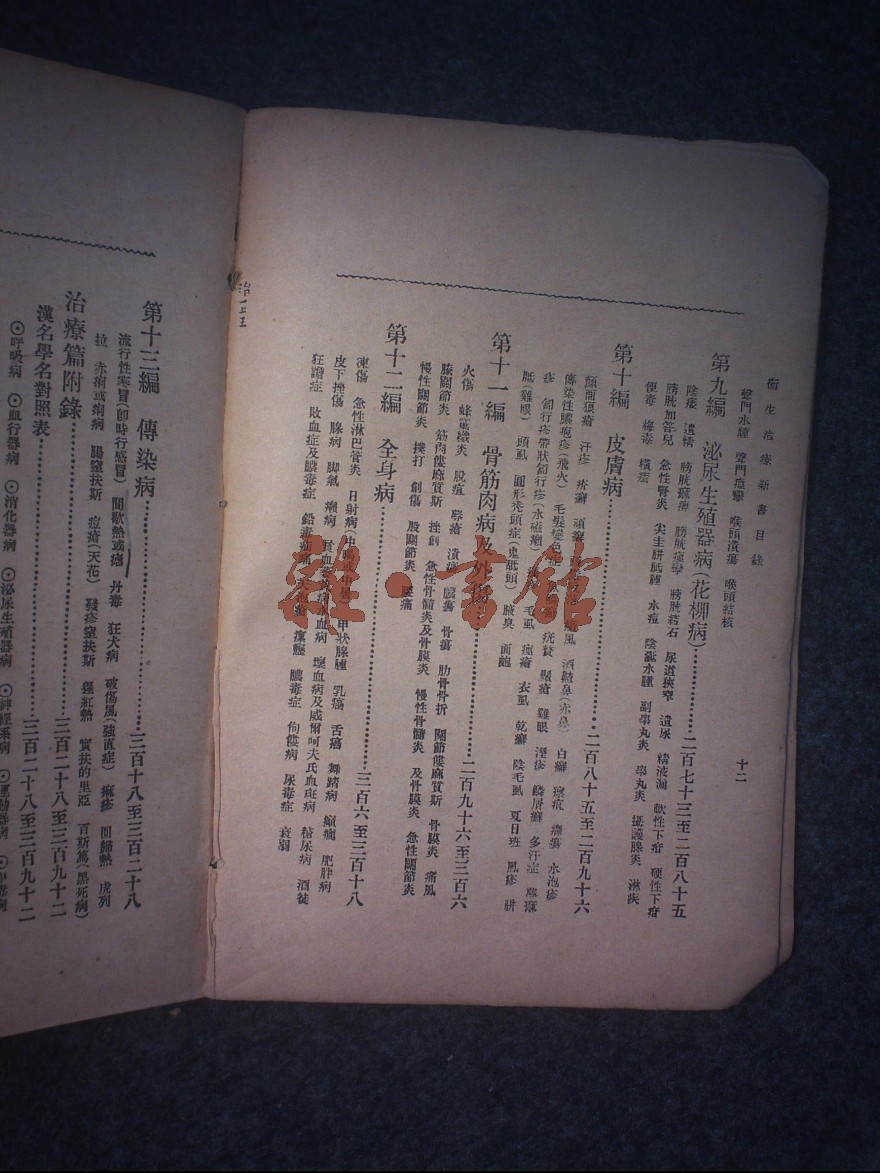 衞生治療新書目錄
十二
聲門水腫 聲門痙攣 喉頭潰瘍 喉頭結核
第九編 泌尿生殖器病(花柳病)…………二百七十三至二百八十五
陰痿 遺精 膀胱麻痺 膀胱痙攣 膀胱結石 尿道狹窄 遺尿 精液漏 軟性下疳 硬性下疳
膀胱加答兒 急性腎炎 尖圭胼胝腫 水痘 陰囊水腫 副睾丸炎 睾丸炎 攝護腺炎 淋疾
便毒 梅毒 橫痃
第十編 皮膚病…………二百八十五至二百九十六
顏面猥瘡 汗疹 疥癬 頑癬 酒皶鼻(赤鼻) 白癬 水泡疹
傳染性膿疱疹(飛火) 毛髮變色症 疣贅 雞眼 溼疹 鱗屑癬 多汗症 蕁麻
疹 匐行疹帶狀匐行疹(水磁瘡) 毛虱 疱瘡 衣虱 乾癬 陰毛虱 夏日斑 風疹 胼
胝(雞眼) 頭虱 圓形禿頭症(鬼舐頭) 腋臭 面皰
第十一編 骨筋肉病及死傷…………二百九十六至三百六
火傷 蜂窠織炎 脫疽 瘭疽 潰瘍 膿瘍 骨瘍 肋骨骨折 關節僂麻質斯 骨膜炎 痛風
膝關節炎 筋肉僂麻質斯 挫創 急性骨髓炎及骨膜炎 慢性骨髓炎 及骨膜炎 急性關節炎
慢性關節炎 撲打 創傷 股關節炎 腰痛
第十二編 全身病…………三百六至三百十八
凍傷 急性淋巴管炎 日射病 甲狀腺腫 乳癌 舌癌 舞蹈病 癲癇 肥胖病
皮下挫傷 腺病 脚氣 癩病 貧血 白血病 壞血病及威爾呵夫氏血斑病 糖尿病 酒徒
狂譫症 敗血症及膿毒症 鉛毒 瘰癧 膿毒症 佝僂病 尿毒症 衰弱
第十三編 傳染病…………三百十八至三百二十八
流行性寒冒(卽時行感冒) 間歇熱或瘧 丹毒 狂犬病 破傷風(強直症) 麻疹 回歸熱 虎列
拉 赤痢或痢病 腸窒扶斯 痘瘡(天花) 發疹窒扶斯 猩紅熱 實扶的里亞 百斯篤(黑死病)
治療篇附錄…………三百二十八至三百九十二
漢名學名對照表…………三百二十八至三百九十二
⊙呼吸病 ⊙血行器病 ⊙消化器病 ⊙泌尿生殖器病 ⊙神經系病 ⊙運動器病 ⊙中毒病
雜·書館